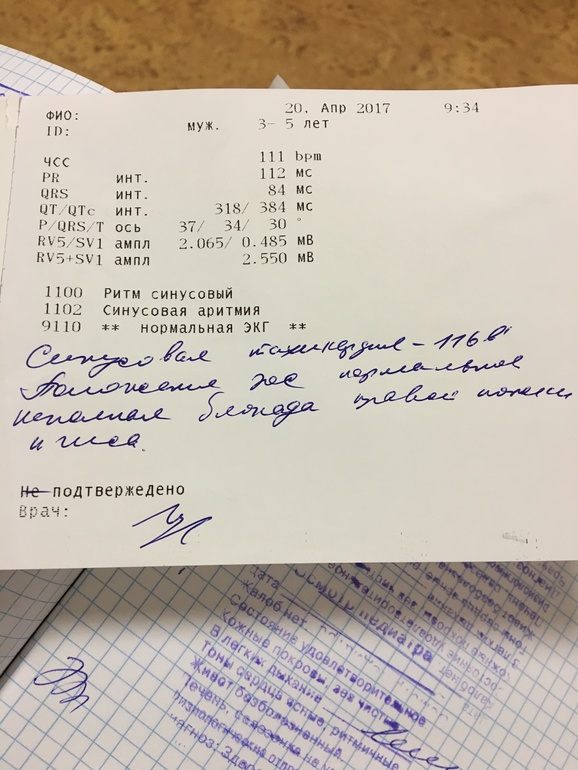 20. Апр 2017 9:34
ФИО:
ID: муж. 3- 5 лет
ЧСС 111 bpm
PR инт. 112 мс
QRS инт. 84 мс
QT/QTc инт. 318/ 384 мс
P/QRS/T ось 37/ 34/ 30 °
RV5/SV1 ампл 2.065/ 0.485 мВ
RV5+SV1 ампл 2.550 мВ
1100 Ритм синусовый
1102 Синусовая аритмия
9110 ** нормальная ЭКГ **
Синусовая тахикардия - 116 в'
Положение эос нормальное
неполная блокада правой ножки
п гиса.
Не подтвержедено
Врач:
дата
осмотр педиатра
Жалоб нет
Состояние удовлетворительное
Кожные покровы, зев чист
В легких дыхание
тоны сердца ясные, ритмичные
Живот безболезненный.
печень, селезенка не